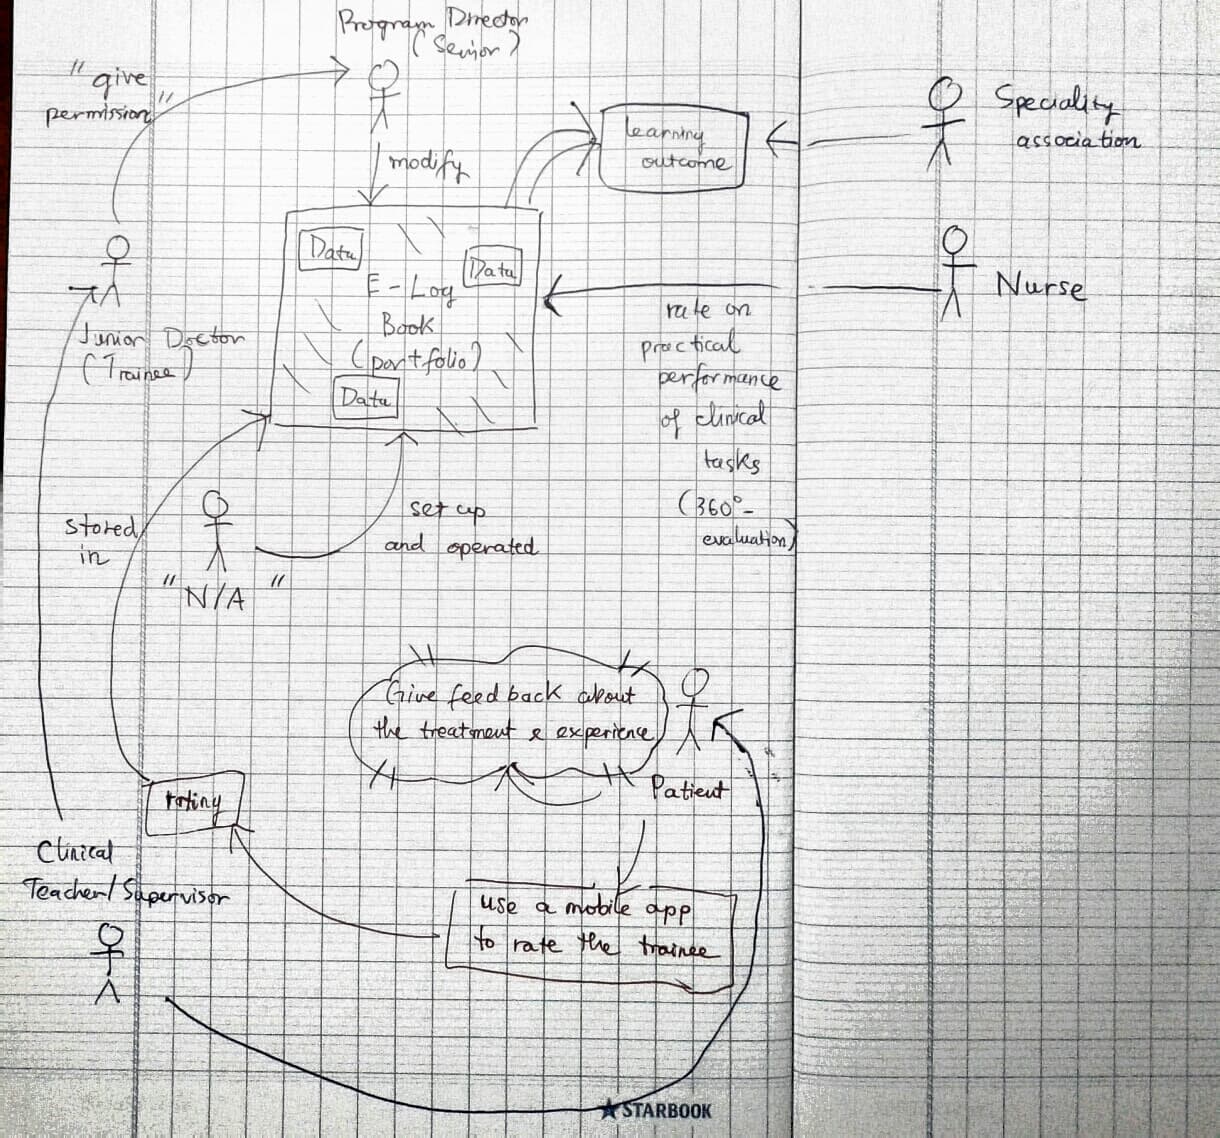 Program Director
(Senior)
"give
permission"
modify
learning
outcome
Speciality
association
Data
Data
E-Log
Book
(portfolio)
Data
Nurse
rate on
practical
performance
of clinical
tasks
(360°-
evaluation)
Junior Doctor
(Trainee)
stored
in
set up
and operated
"N/A"
Give feedback about
the treatment & experience
Patient
rating
Clinical
Teacher/Supervisor
use a mobile app
to rate the trainee
STARBOOK